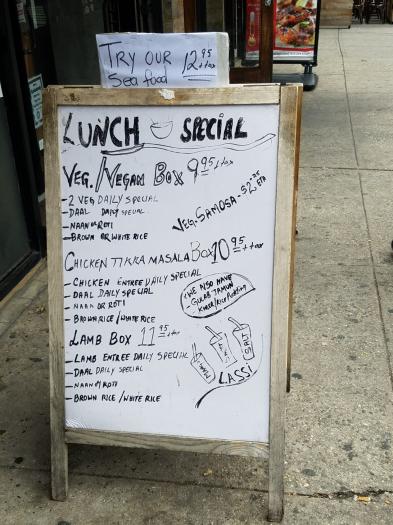 TRY OUR 12.95 +tax
Sea food
LUNCH SPECIAL
VEG./VEGAN BOX 9.95 +tax
- 2 VEG DAILY SPECIAL
- DAAL DAILY SPECIAL
- NAAN OR ROTI
- BROWN OR WHITE RICE
VEG. SAMOSA - $2.25 ETA
CHICKEN TIKKA MASALA Box 10.95 +tax
- CHICKEN ENTREE DAILY SPECIAL
- DAAL DAILY SPECIAL
- NAAN OR ROTI
- BROWN RICE / WHITE RICE
* WE ALSO HAVE
- GULAB JAMUN
KHEER/RICE PUDDING
LAMB BOX 11.95 +tax
- LAMB ENTREE DAILY SPECIAL
- DAAL DAILY SPECIAL
- NAAN OR ROTI
- BROWN RICE / WHITE RICE
SALT
LASSI